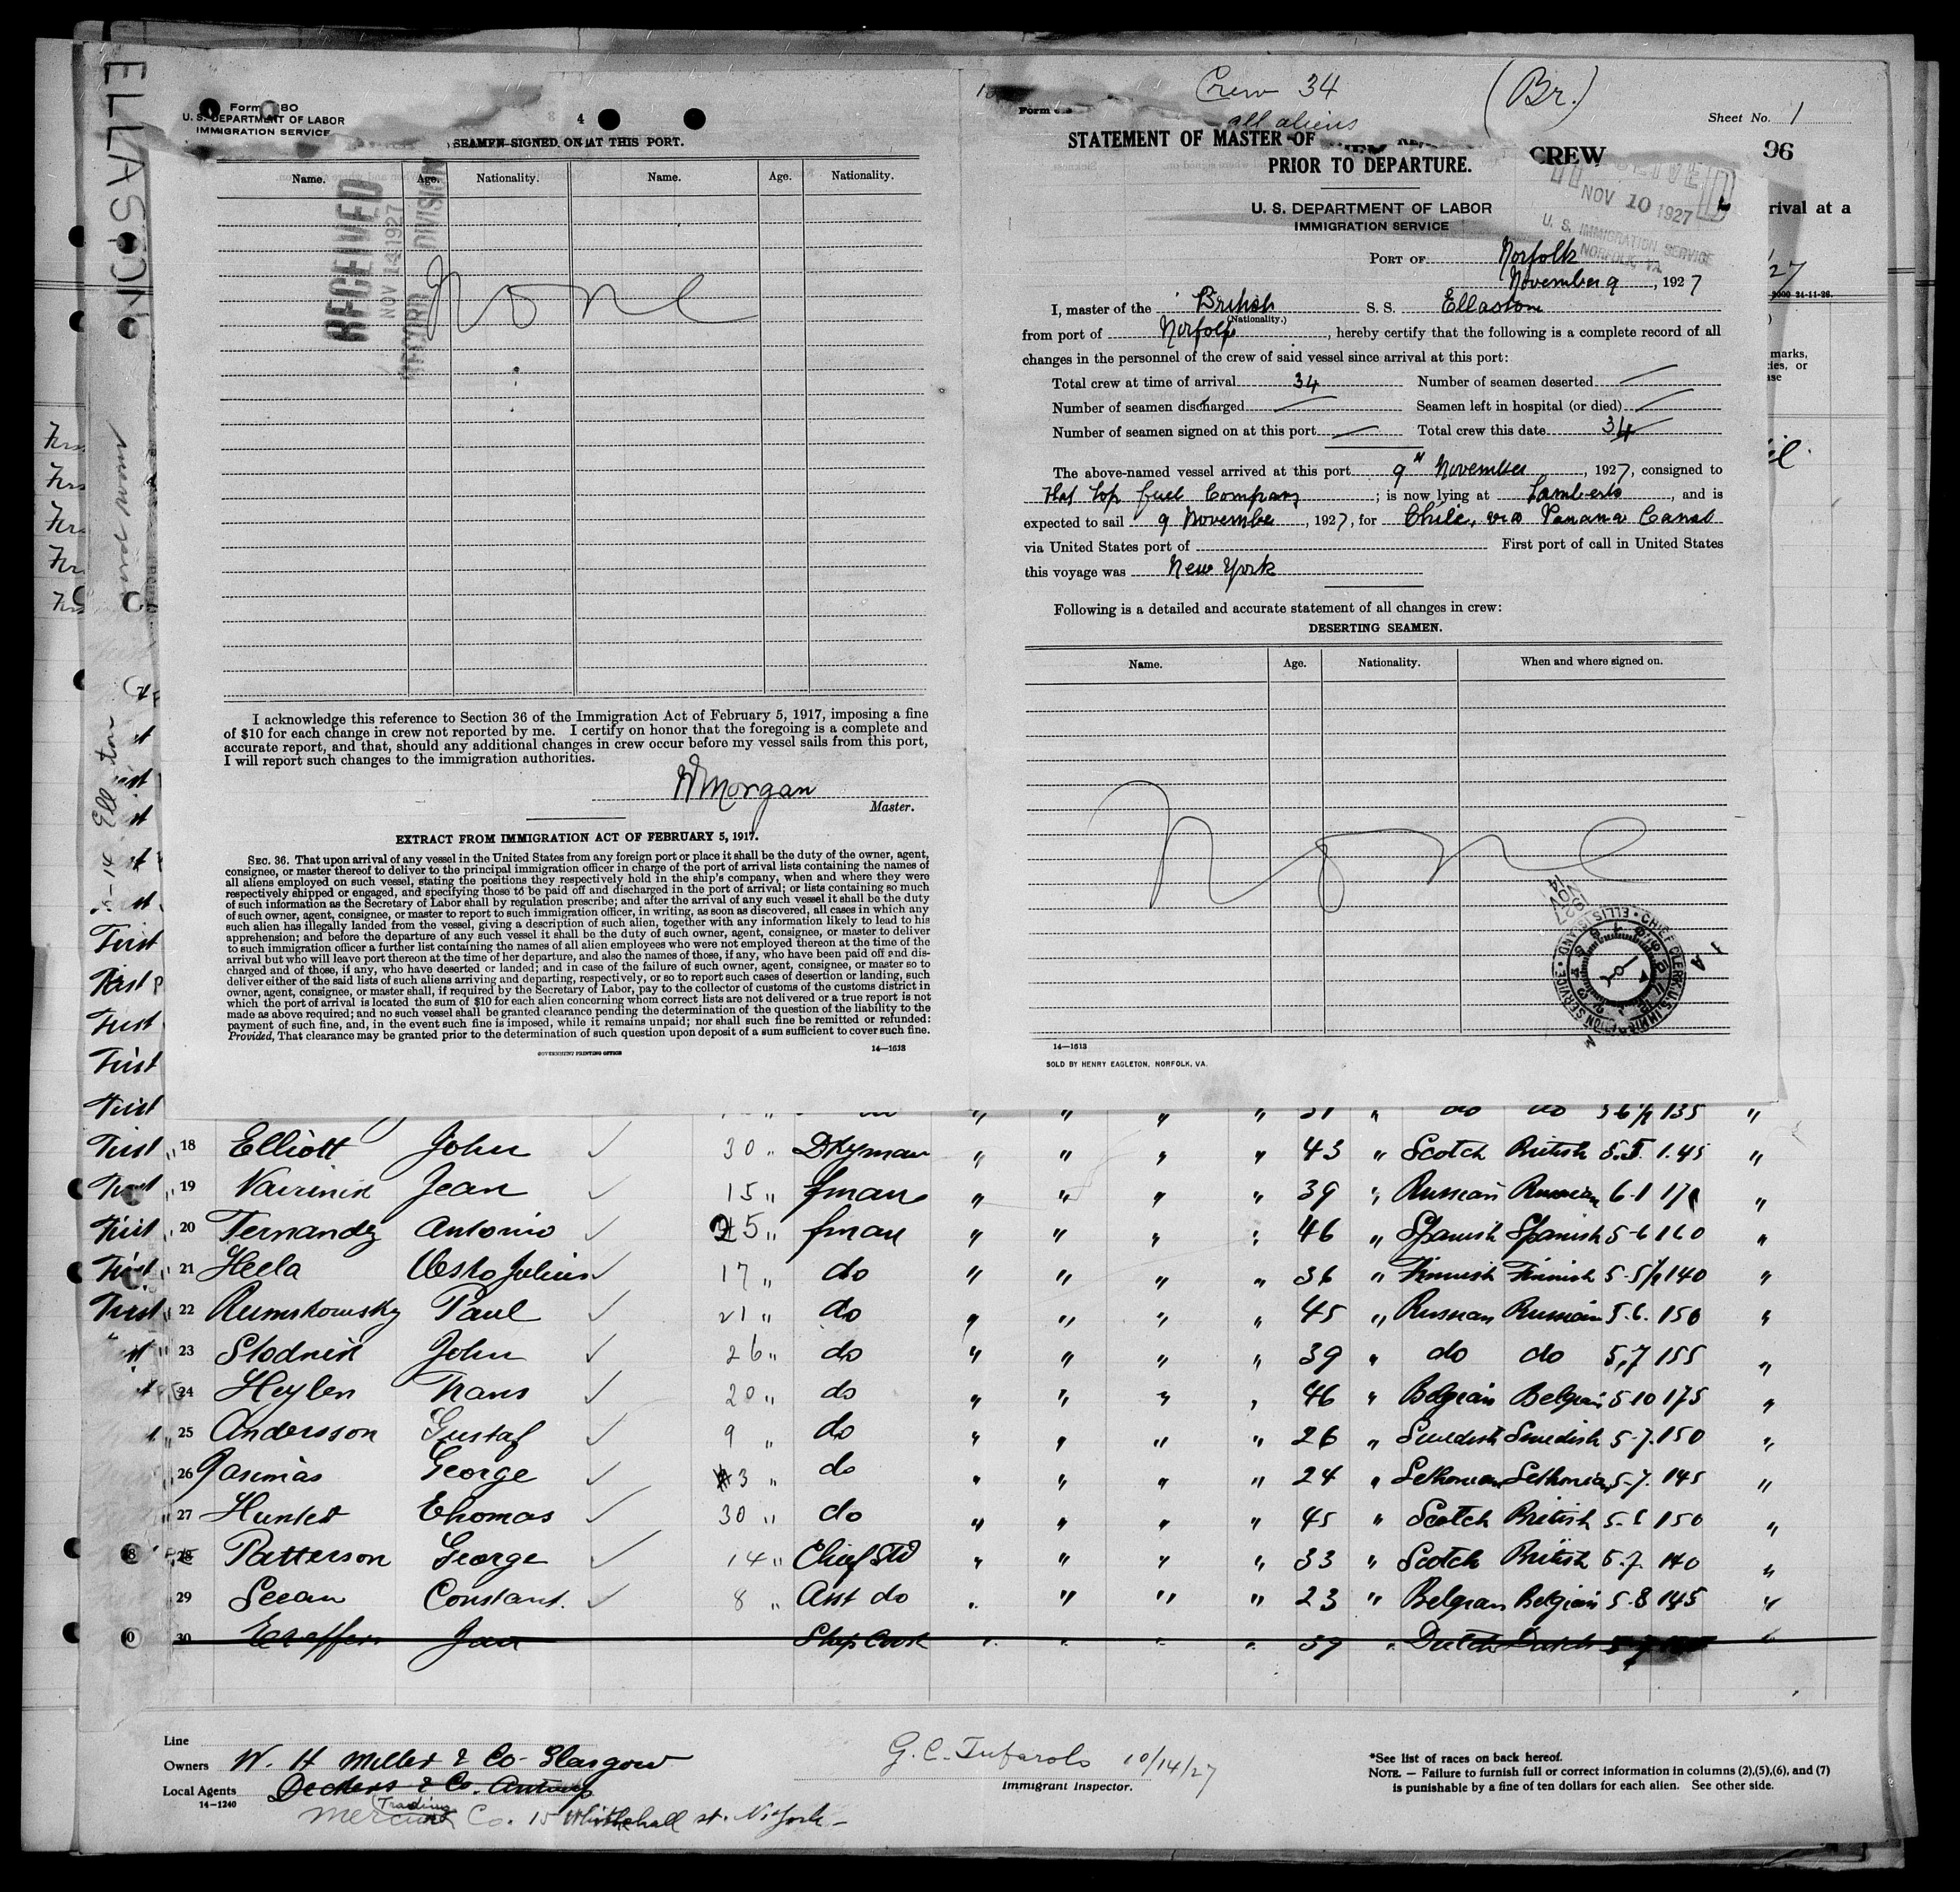 ELLASTON
Form 680
U. S. DEPARTMENT OF LABOR
IMMIGRATION SERVICE
4
SEAMEN SIGNED ON AT THIS PORT.
Name. Age. Nationality. Name. Age. Nationality.
RECEIVED
NOV 14 1927
RECORD DIVISION
None
I acknowledge this reference to Section 36 of the Immigration Act of February 5, 1917, imposing a fine
of $10 for each change in crew not reported by me. I certify on honor that the foregoing is a complete and
accurate report, and that, should any additional changes in crew occur before my vessel sails from this port,
I will report such changes to the immigration authorities.
W Morgan
Master.
EXTRACT FROM IMMIGRATION ACT OF FEBRUARY 5, 1917.
SEC. 36. That upon arrival of any vessel in the United States from any foreign port or place it shall be the duty of the owner, agent,
consignee, or master thereof to deliver to the principal immigration officer in charge of the port of arrival lists containing the names of
all aliens employed on such vessel, stating the positions they respectively hold in the ship's company, when and where they were
respectively shipped or engaged, and specifying those to be paid off and discharged in the port of arrival; or lists containing so much
of such information as the Secretary of Labor shall by regulation prescribe; and after the arrival of any such vessel it shall be the duty
of such owner, agent, consignee, or master to report to such immigration officer, in writing, as soon as discovered, all cases in which any
such alien has illegally landed from the vessel, giving a description of such alien, together with any information likely to lead to his
apprehension; and before the departure of any such vessel it shall be the duty of such owner, agent, consignee, or master to deliver
to such immigration officer a further list containing the names of all alien employees who were not employed thereon at the time of the
arrival but who will leave port thereon at the time of her departure, and also the names of those, if any, who have been paid off and dis-
charged and of those, if any, who have deserted or landed; and in case of the failure of such owner, agent, consignee, or master so to
deliver either of the said lists of such aliens arriving and departing, respectively, or so to report such cases of desertion or landing, such
owner, agent, consignee, or master shall, if required by the Secretary of Labor, pay to the collector of customs of the customs district in
which the port of arrival is located the sum of $10 for each alien concerning whom correct lists are not delivered or a true report is not
made as above required; and no such vessel shall be granted clearance pending the determination of the question of the liability to the
payment of such fine, and, in the event such fine is imposed, while it remains unpaid; nor shall such fine be remitted or refunded:
Provided, That clearance may be granted prior to the determination of such question upon deposit of a sum sufficient to cover such fine.
GOVERNMENT PRINTING OFFICE 14—1613
Crew 34 (Br.)
all aliens
Sheet No. 1
STATEMENT OF MASTER OF
PRIOR TO DEPARTURE.
CREW
96
U. S. DEPARTMENT OF LABOR
IMMIGRATION SERVICE
NOV 10 1927
U. S. IMMIGRATION SERVICE
NORFOLK, VA.
rival at a
PORT OF Norfolk
November 9, 1927
I, master of the British S. S. Ellaston
(Nationality.)
from port of Norfolk, hereby certify that the following is a complete record of all
changes in the personnel of the crew of said vessel since arrival at this port:
Total crew at time of arrival 34 Number of seamen deserted —
Number of seamen discharged — Seamen left in hospital (or died) —
Number of seamen signed on at this port — Total crew this date 34
The above-named vessel arrived at this port 9" November, 1927, consigned to
Flat Top fuel Company; is now lying at Lamberts, and is
expected to sail 9 November, 1927, for Chile, via Panama Canal
via United States port of First port of call in United States
this voyage was New York
Following is a detailed and accurate statement of all changes in crew:
DESERTING SEAMEN.
Name. Age. Nationality. When and where signed on.
None
NOV 14 1927
CHIEF CLERK U.S. IMMIGRATION SERVICE • ELLIS ISLAND •
14—1613
SOLD BY HENRY EAGLETON, NORFOLK, VA.
First 18 Elliott John 30 " Dkyman " " " " 43 " Scotch British 5.5 145 "
First 19 Jean 15 " fman " " " " 39 " Russian Russian 6-1 170 "
First 20 Fernandez Antonio 25 " fman " " " " 46 " Spanish Spanish 5-6 160 "
First 21 Heela 17 " do " " " " 36 " Finnish Finnish 5-5½ 140 "
First 22 Rumskowsky Paul 21 " do " " " " 45 " Russian Russian 5.6. 150 "
23 Slodnik John 26 " do " " " " 39 " do do 5,7 155 "
24 Heylen Frans 20 " do " " " " 46 " Belgian Belgian 5-10 175 "
25 Andersson Gustaf 9 " do " " " " 26 " Swedish Swedish 5-7. 150 "
26 George 3 " do " " " " 24 " 5-7. 145 "
27 Hunter Thomas 30 " do " " " " 45 " Scotch British 5-6 150 "
28 Patterson George 14 " Chief Std " " " " 33 " Scotch British 5.7. 140 "
29 Constant. 8 " Asst do " " " " 23 " Belgian Belgian 5-8 145 "
30 Jan Ships Cook " " " " 59 " Dutch Dutch "
Line
Owners W. H Miller & Co- Glasgow
Local Agents Deckers & Co. Antwerp
14-1240
Trading
Co. 15 Whitehall st. N. York -
10/14/27
Immigrant Inspector.
*See list of races on back hereof.
NOTE. — Failure to furnish full or correct information in columns (2),(5),(6), and (7)
is punishable by a fine of ten dollars for each alien. See other side.